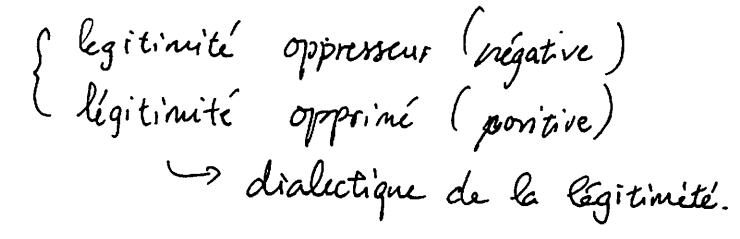 legitimité oppresseur (négative)
légitimité opprimé (positive)
↳ dialectique de la légitimété.